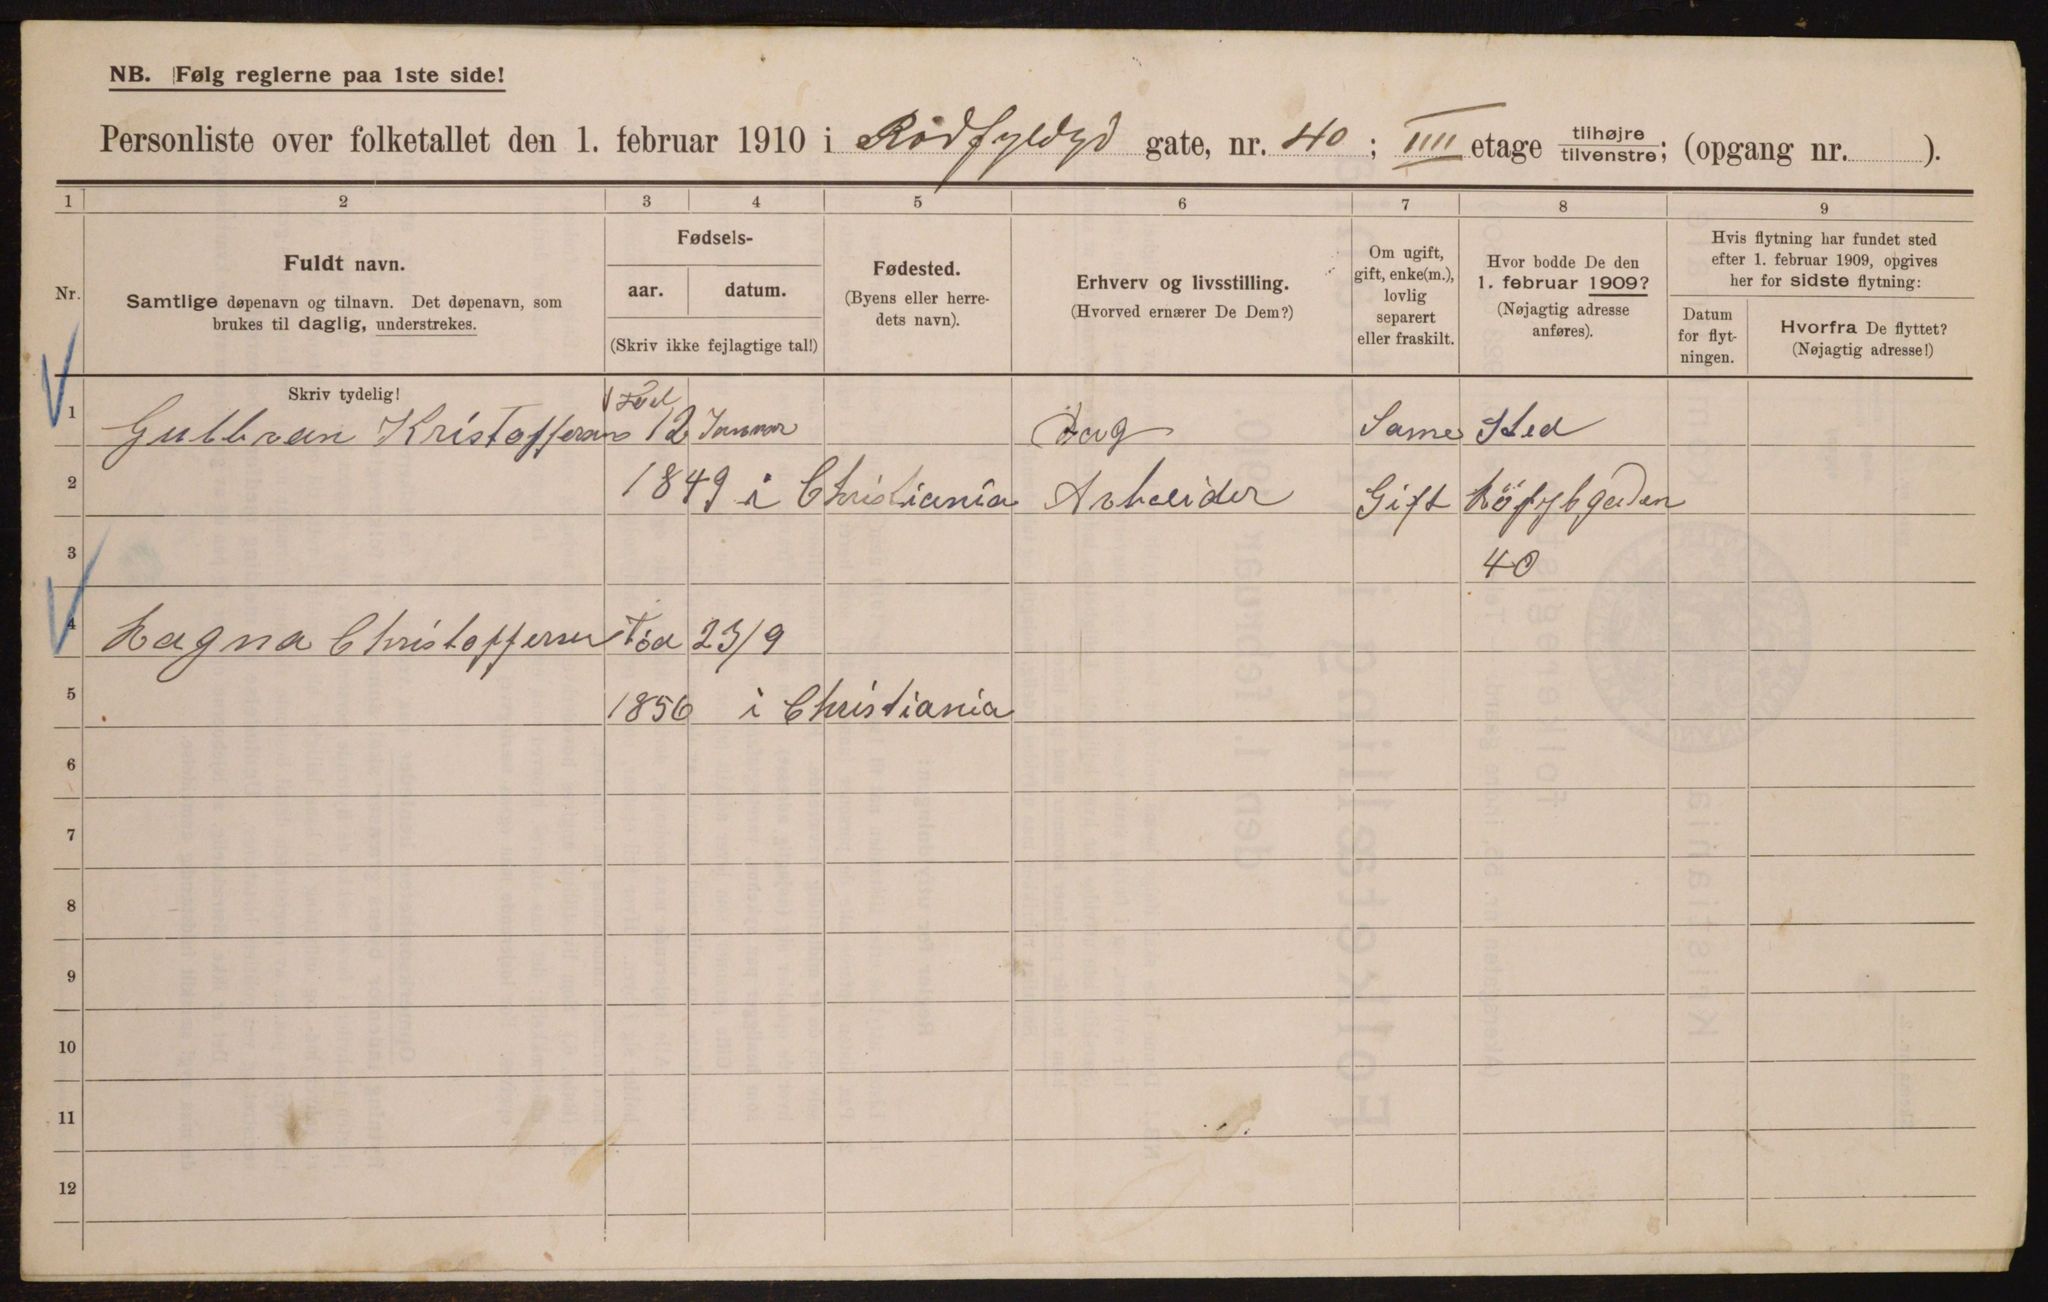 NB. Følg reglerne paa 1ste side!
Personliste over folketallet den 1. februar 1910 i Rödfyldgd gate, nr. 40; IIII etage tilhøjre/tilvenstre; (opgang nr. ).
1 2 3 4 5 6 7 8 9
Nr.
Fuldt navn.
Samtlige døpenavn og tilnavn. Det døpenavn, som
brukes til daglig, understrekes.
Fødsels-
aar. datum.
(Skriv ikke fejlagtige tal!)
Fødested.
(Byens eller herre-
dets navn).
Erhverv og livsstilling.
(Hvorved ernærer De Dem?)
Om ugift,
gift, enke(m.),
lovlig
separert
eller fraskilt.
Hvor bodde De den
1. februar 1909?
(Nøjagtig adresse
anføres).
Hvis flytning har fundet sted
efter 1. februar 1909, opgives
her for sidste flytning:
Datum
for flyt-
ningen.
Hvorfra De flyttet?
(Nøjagtig adresse!)
Skriv tydelig!
1 Gulbran Kristoffersen Föd 12 Januar Dag Same Sted
2 1849 i Christiania Arbeider Gift
3 40
4 Ragna Christoffersen Föd 23/9
5 1856 i Christiania
6
7
8
9
10
11
12